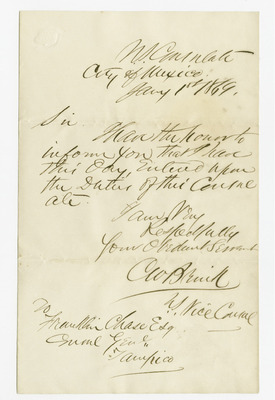 U.S. Consulate
City of Mexico.
Jany 1st 1864.
Sir
I have the honor to
inform you that I have
this day entered upon
the Duties of this Consul
ate.
I am Very
Respectfully
Your Obedient Servant
U.S. Vice Consul
To
Franklin Chase Esq
Consul Genl.
Tampico